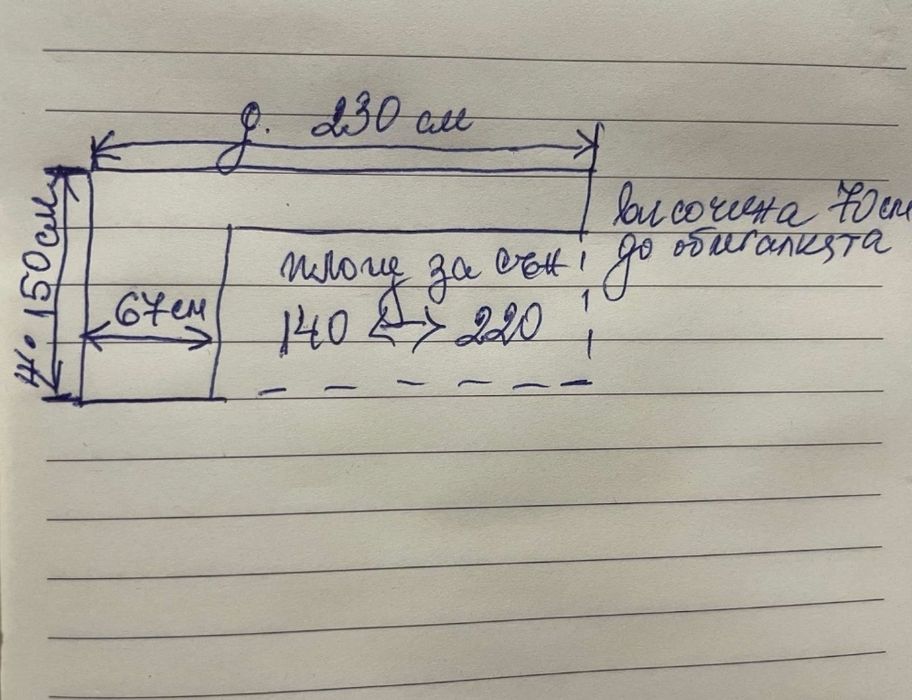 д. 230 см
ш. 150 см
67 см
площ за сън
140 ↔ 220
височина 70 см
до облегалката